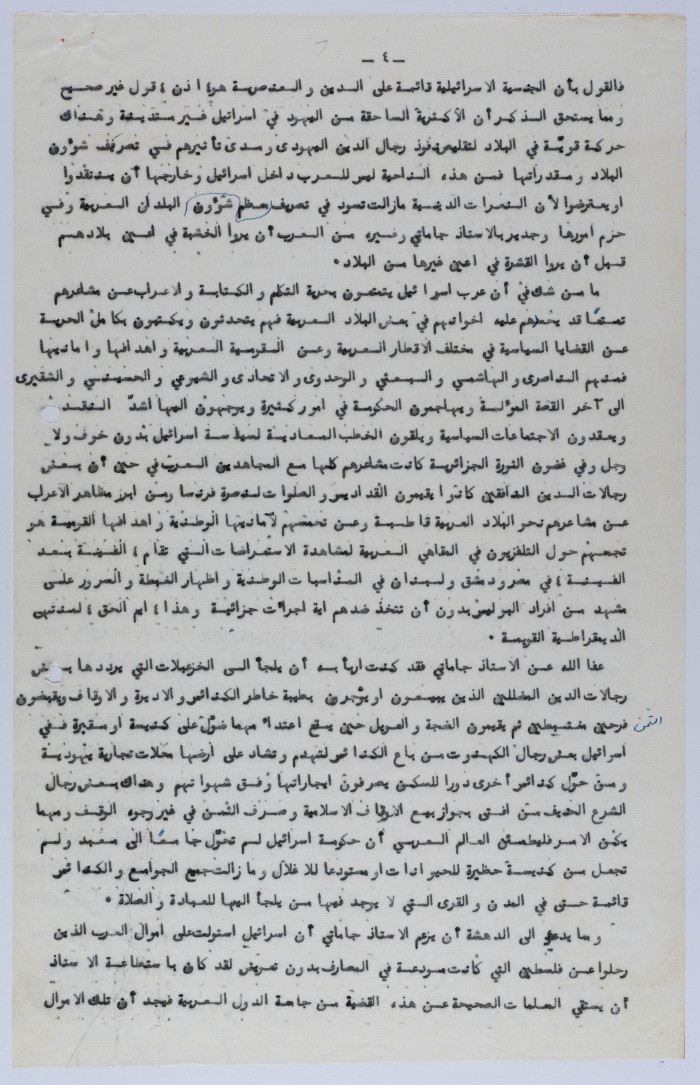 — ٤ —
فالقول بأن الجنسية الاسرائيلية قائمة على الدين والعنصرية هو، اذن، قول غير صحيح
ومما يستحق الذكر أن الأكثرية الساحقة من اليهود في اسرائيل غير متدينة وهناك
حركة قويّة في البلاد لتقليص نفوذ رجال الدين اليهودى ومدى تأثيرهم في تصريف شؤون
البلاد ومقدراتها فمن هذه الناحية ليس للعرب داخل اسرائيل وخارجها أن ينتقدوا
او يعترضوا لأن النعرات الدينية مازالت تسود في تصريف معظم شؤون البلدان العربية وفي
حزم أمورها وجدير بالاستاذ جاماتي وغيره من العرب أن يروا الخشبة في اعين بلادهم
قبل أن يروا القشرة في اعين غيرها من البلاد.
ما من شك في أن عرب اسرائيل يتمتعون بحرية التكلم والكتابة والاعراب عن مشاعرهم
تمتعًا قد يحسدهم عليه اخوانهم في بعض البلاد العربية فهم يتحدثون ويكتبون بكامل الحرية
عن القضايا السياسية في مختلف الاقطار العربية وعن القومية العربية واهدافها وامانيها
فمنهم الناصرى والهاشمي والبعثي والوحدوى والاتحادى والشيوعي والحسيني والشقيرى
الى آخر القصة المؤلمة ويهاجمون الحكومة في امور كثيرة ويوجهون اليها اشدّ النقد
ويعقدون الاجتماعات السياسية ويلقون الخطب المعادية لسياسة اسرائيل بدون خوف ولا
وجل وفي غضون الثورة الجزائرية كانت مشاعرهم كلها مع المجاهدين العرب في حين أن بعض
رجالات الدين المنافقين كانوا يقيمون القداديس والصلوات لنصرة فرنسا ومن ابرز مظاهر الاعراب
عن مشاعرهم نحو البلاد العربية قاطبة وعن تحمسهم لأمانيها الوطنية واهدافها القومية هو
تجمعهم حول التلفزيون في المقاهي العربية لمشاهدة الاستعراضات التي تقام، الفينة بعد
الفينة، في مصر ودمشق ولبنان في المناسبات الوطنية واظهار الغبطة والسرور على
مشهد من افراد البوليس بدون أن تتخذ ضدهم اية اجراءات جزائية وهذا، ايم الحق، لمنتهى
الديمقراطية القويمة.
عفا الله عن الاستاذ جاماتي فقد كنت اربأ به أن يلجأ الى الخزعبلات التي يرددها بعض
رجالات الدين المضللين الذين يبيعون او يؤجرون بطيبة خاطر الكنائس والاديرة والاوقاف ويقبضون
الثمن
فرحين مغتبطين ثم يقيمون الضجة والعويل حين يقع اعتداء مهما ضؤل على كنيسة او مقبرة ففي
اسرائيل بعض رجال الكهنوت من باع الكنائس لتهدم وتشاد على ارضها محلات تجارية يهودية
ومن حوّل كنائس أخرى دورا للسكن يصرفون ايجاراتها وفق شهواتهم وهناك بعض رجال
الشرع الحنيف من افتى بجواز بيع الاوقاف الاسلامية وصرف الثمن في غير وجوه الوقف ومهما
يكن الامر فليطمئن العالم العربي أن حكومة اسرائيل لم تحوّل جامعًا الى معبد ولم
تجعل من كنيسة حظيرة للحيوانات او مستودعا للاغلال وما زالت جميع الجوامع والكنائس
قائمة حتى في المدن والقرى التي لا يوجد فيها من يلجأ اليها للعبادة والصلاة.
ومما يدعو الى الدهشة أن يزعم الاستاذ جاماتي أن اسرائيل استولت على اموال العرب الذين
رحلوا عن فلسطين التي كانت مودعة في المصارف بدون تعويض لقد كان باستطاعة الاستاذ
أن يستقي المعلمات الصحيحة عن هذه القضية من جامعة الدول العربية فيجد أن تلك الاموال